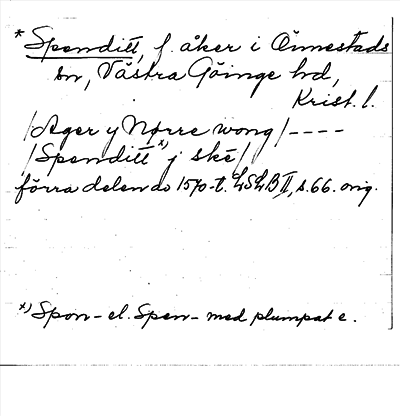 * Spenditt, f. åker i Önnestads
sn, Västra Göinge hd,
Krist. l.
/Ager y Nørre wong/----
/Spenditt x) j ské/
förra delen av 1570-t. LSLB II, s. 66. orig.
x) Spon- el. Spen- med plumpat e.